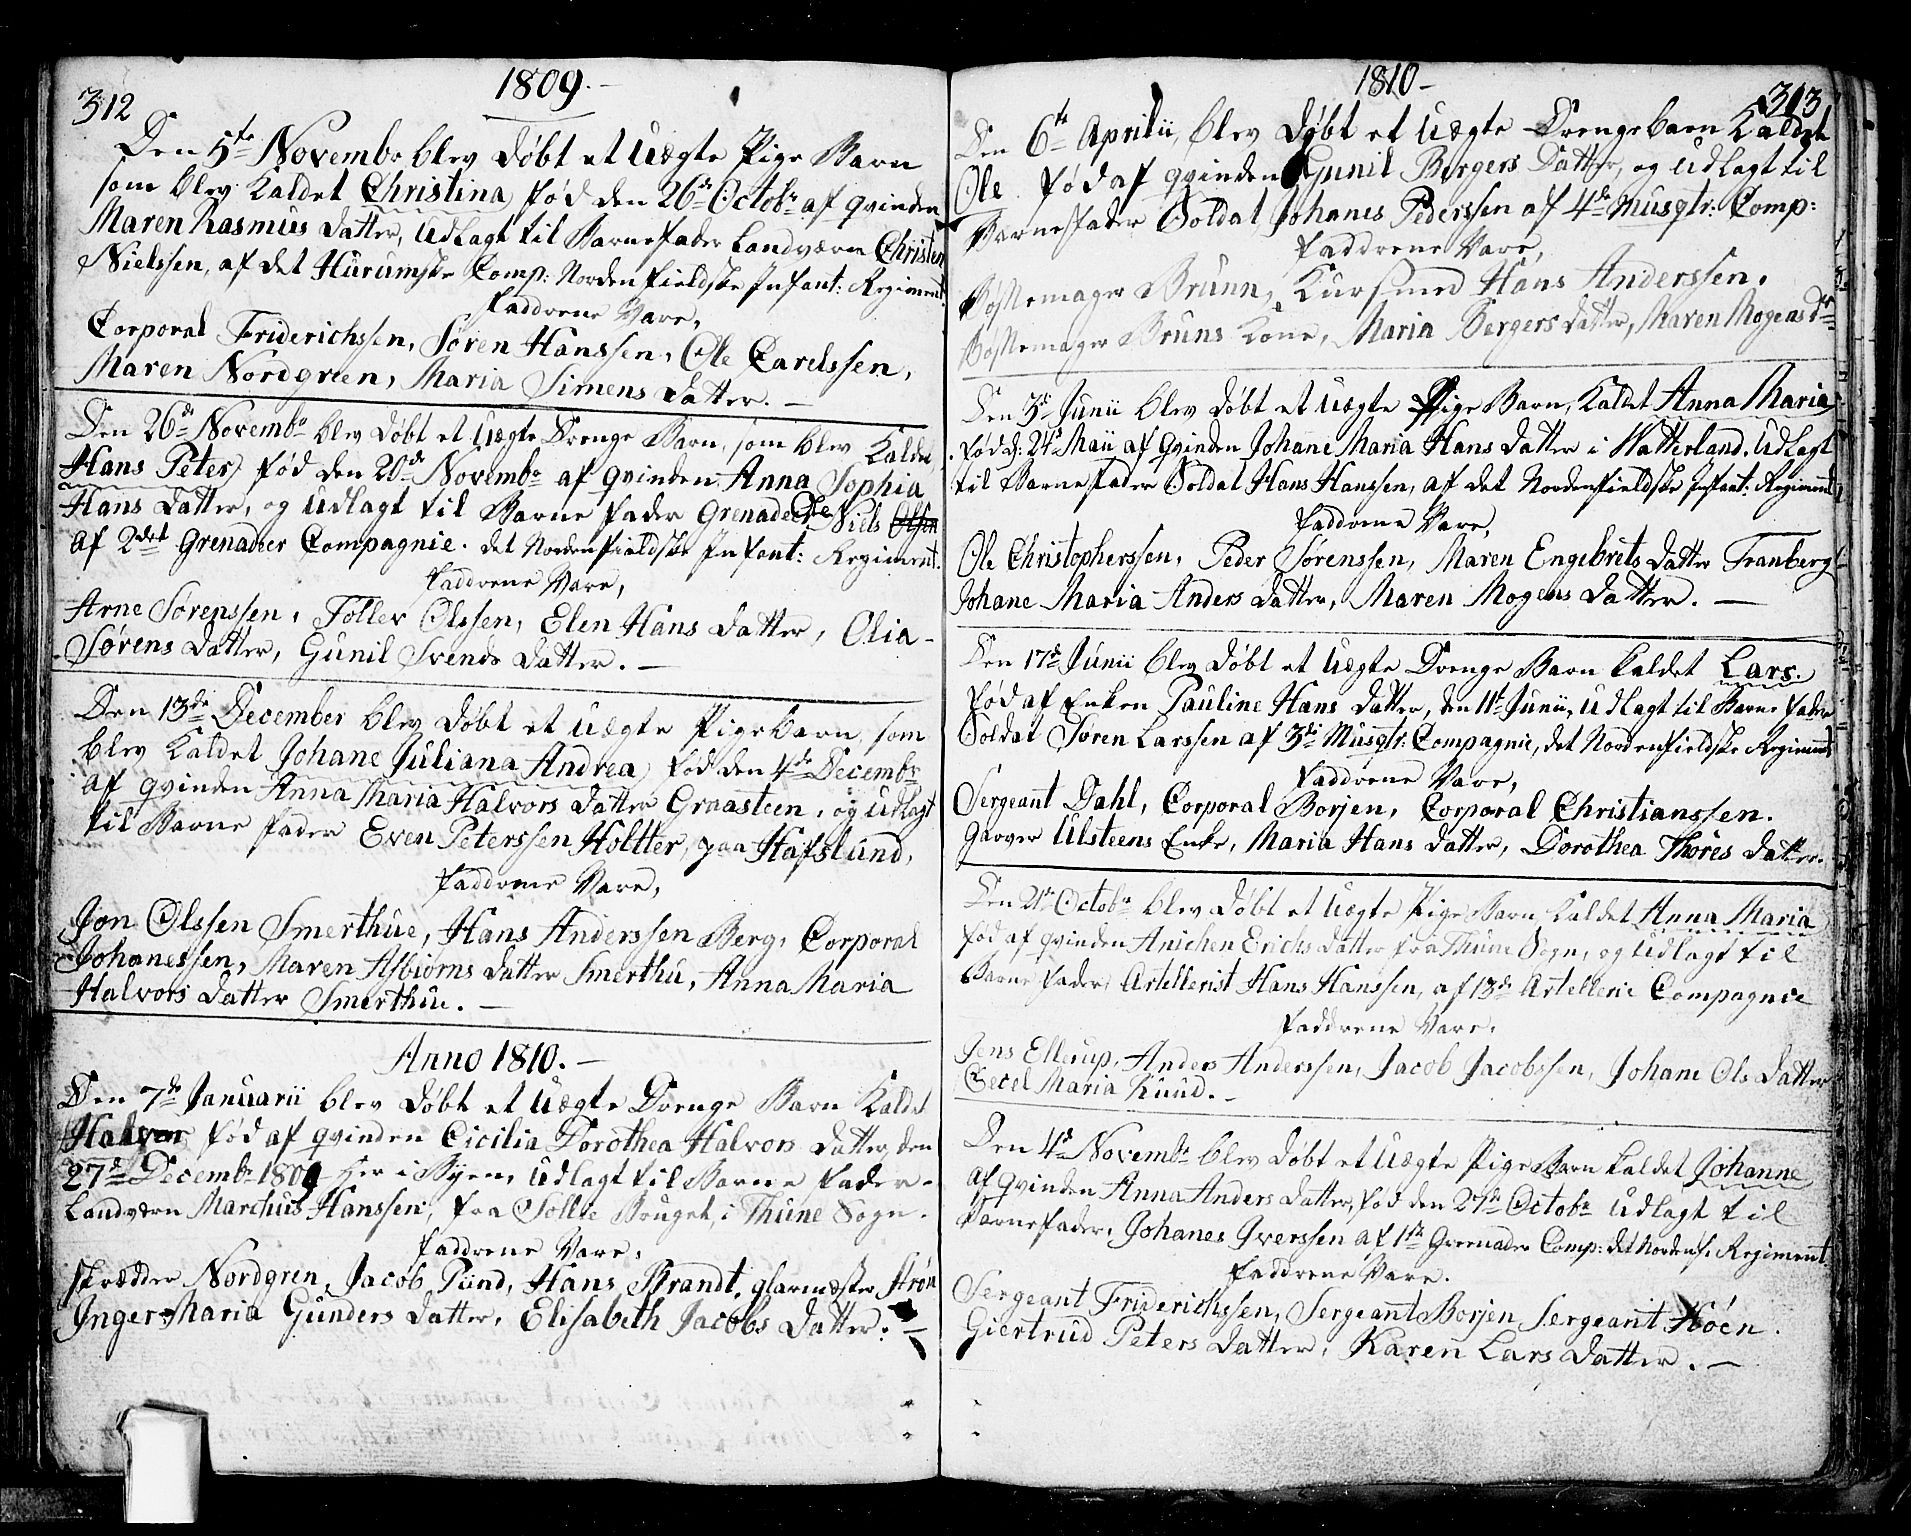 312
1809.
Den 5te Novembr blev døbt et Uægte Pige Barn
som blev kaldet Christina, fød den 26de Octobr af qvinden
Maren Rasmus datter, Udlagt til Barnefader Landværn Christen
Nielssen, af det Hurumske Comp: Nordenfieldske Infant: Regiment
Faddrene Vare,
Corporal Friderichssen, Søren Hanssen, Ole Carelssen,
Maren Nordgreen, Maria Simens datter. —
Den 26de Novembr blev døbt et Uægte Drenge Barn, som blev kaldet
Hans Peter, fød den 20de Novembr af qvinden Anna Sophia
Hans datter, og Udlagt til Barne fader Grenadeer Ole Niels Olsen
af 2det Grenadeer Compagnie. det Nordenfieldske Infant: Regiment.
Faddrene Vare,
Arne Sørenssen, Toller Olssen, Elen Hans datter, Olia
Sørens datter, Gunil Svends datter. —
Den 13de December blev døbt et uægte Pige barn, som
blev kaldet Johane Juliana Andrea, fød den 4de Decembr
af qvinden Anna Maria Halvors datter Graasteen, og Udlagt
til Barne fader Even Peterssen Holtter, paa Hafslund,
Faddrene Vare,
Jon Olssen Smerthue, Hans Anderssen Berg, Corporal
Johanessen, Maren Asbiorns datter Smerthu, Anna Maria
Halvors datter Smerthue. —
Anno 1810. —
Den 7de Januarii blev døbt et Uægte Drenge Barn kaldet
Halvor fød af qvinden Cicilia Dorothea Halvors datter, den
27de Decembr 1809 her i Byen, Udlagt til Barne fader
Landværn Marchus Hanssen, fra Sollie Bruget, i Thune Sogn.
Faddrene Vare,
Skrædder Nordgren, Jacob Pund, Hans Brandt, glarmæster Strøm
Inger Maria Gunders datter, Elisabeth Jacobs datter. —
1810 —
313
Den 6te Aprilii, blev døbt et Uægte Drengebarn kaldet
Ole fød af qvinden Gunil Borgers datter, og Udlagt til
Barnefader Soldat Johanes Pederssen af 4de Musqtr: Comp:
Faddrene Vare,
Bøssemager Brunn, Kursmed Hans Anderssen.
Bøssemager Bruns kone, Maria Bergers datter, Maren Mogens dr
Den 3de Junii blev døbt et Uægte Pige Barn, kaldet Anna Maria,
fød d: 24de Maii af qvinden Johane Maria Hans datter i Vatterland. Udlagt
til Barnefader Soldat Hans Hanssen, af det Nordenfieldske Infant: Regiment
Faddrene Vare,
Ole Christopherssen, Peder Sørenssen, Maren Engebrets datter Tranberg
Johane Maria Anders datter, Maren Mogens datter. —
Den 17de Junii blev døbt et Uægte Drenge Barn kaldet Lars.
fød af Enken Pauline Hans datter, den 11te Junii, Udlagt til Barne fader
Soldat Søren Larssen af 3die Musqtr: Compagnie, det Nordenfieldske Regiment
Faddrene Vare,
Sergeant Dahl, Corporal Borjen, Corporal Christianssen.
Garver Ulsteens Enke, Maria Hans datter, Dorothea Thores datter.
Den 21de Octobr blev døbt et Uægte Pige Barn kaldet Anna Maria
fød af qvinden Anichen Erichs datter fra Thune Sogn, og Udlagt til
Barne fader, Artellerist Hans Hanssen, af 13de Artellerie Compagnie
Faddrene Vare,
Jens Ellerup, Anders Anderssen, Jacob Jacobssen, Johane Ols datter
Cecel Maria Ruud. —
Den 4de Novembr blev døbt et Uægte Pige Barn kaldet Johanne
af qvinden Anna Anders datter, fød den 27de Octobr Udlagt til
Barnefader, Johanes Iverssen af 1ste Grenader Comp: det Nordenf: Regiment
Faddrene Vare.
Sergeant Friderichssen, Sergeant Borjen Sergeant Høen.
Giertrud Peters datter, Karen Lars datter. —